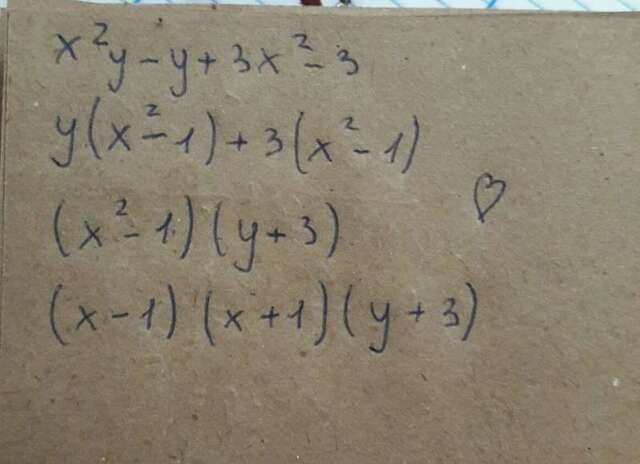 x²y-y+3x²-3
y(x²-1)+3(x²-1)
(x²-1)(y+3)
(x-1)(x+1)(y+3)